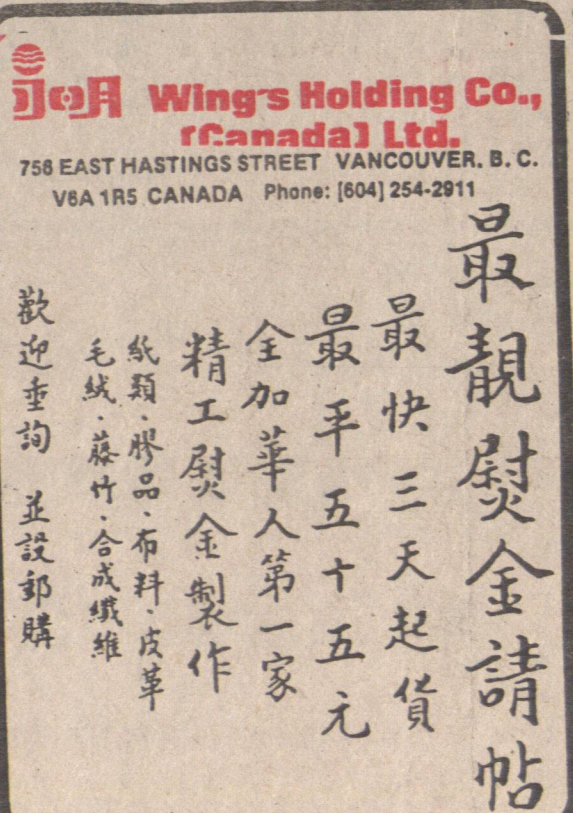 Wing's Holding Co.,
(Canada) Ltd.
756 EAST HASTINGS STREET VANCOUVER. B. C.
V6A 1R5 CANADA Phone: [604] 254-2911
最靚熨金請帖
最快三天起貨
最平五十五元
全加華人第一家
精工熨金製作
紙類、膠品、布料、皮革
毛絨、藤竹、合成纖維
歡迎垂詢 並設郵購